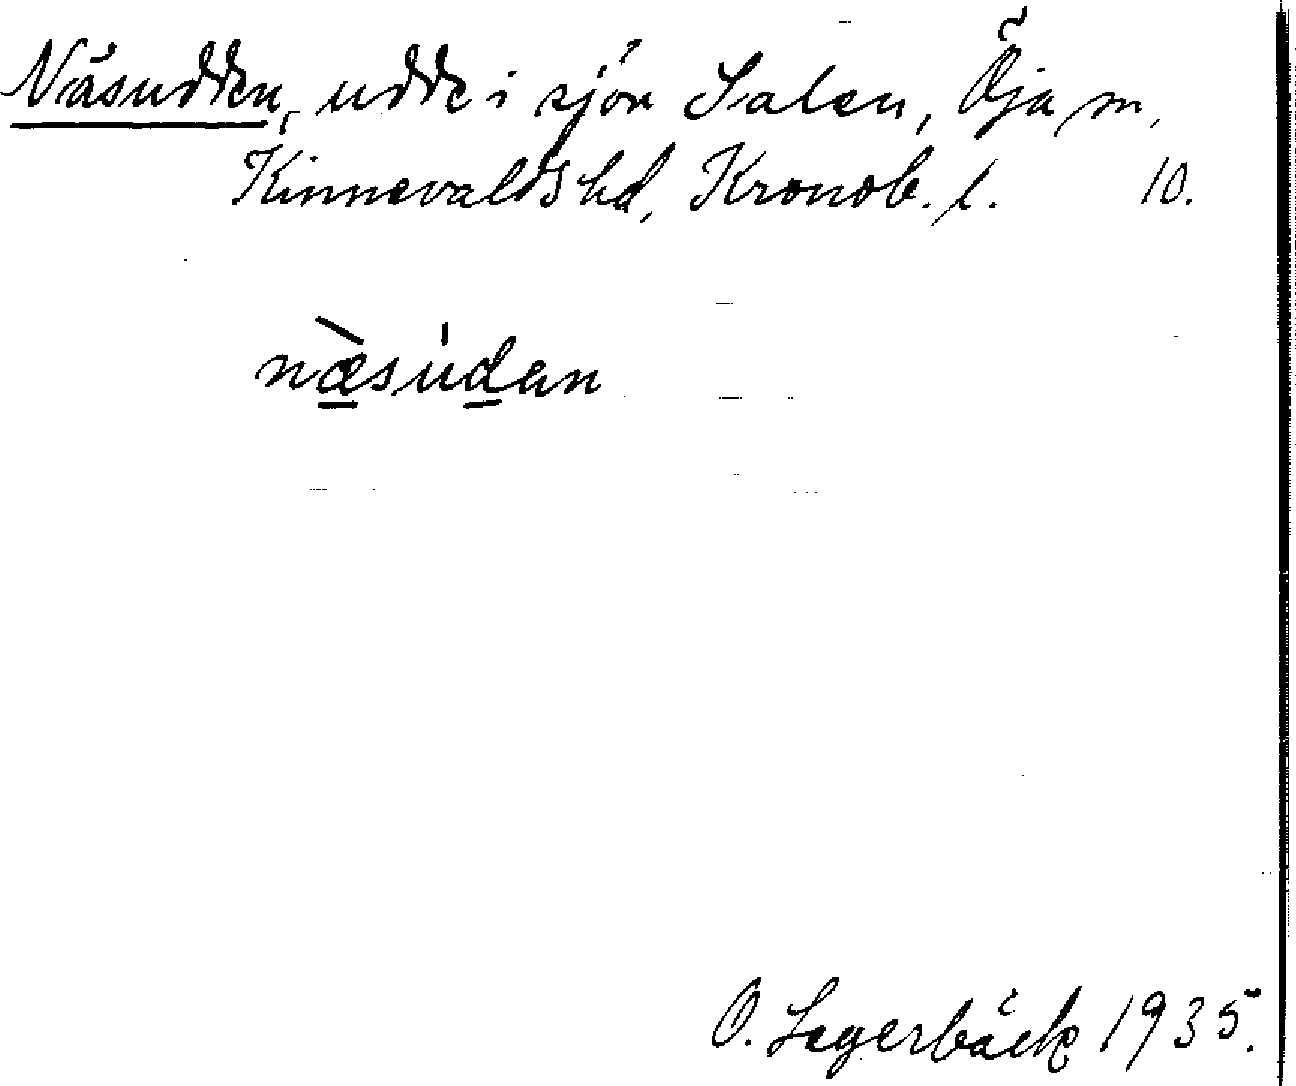 Näsudden, udde i sjön Salen, Öja sn,
Kinnevalds hd, Kronob. l. 10.
næ̀súdan
O. Lagerbäck 1935.